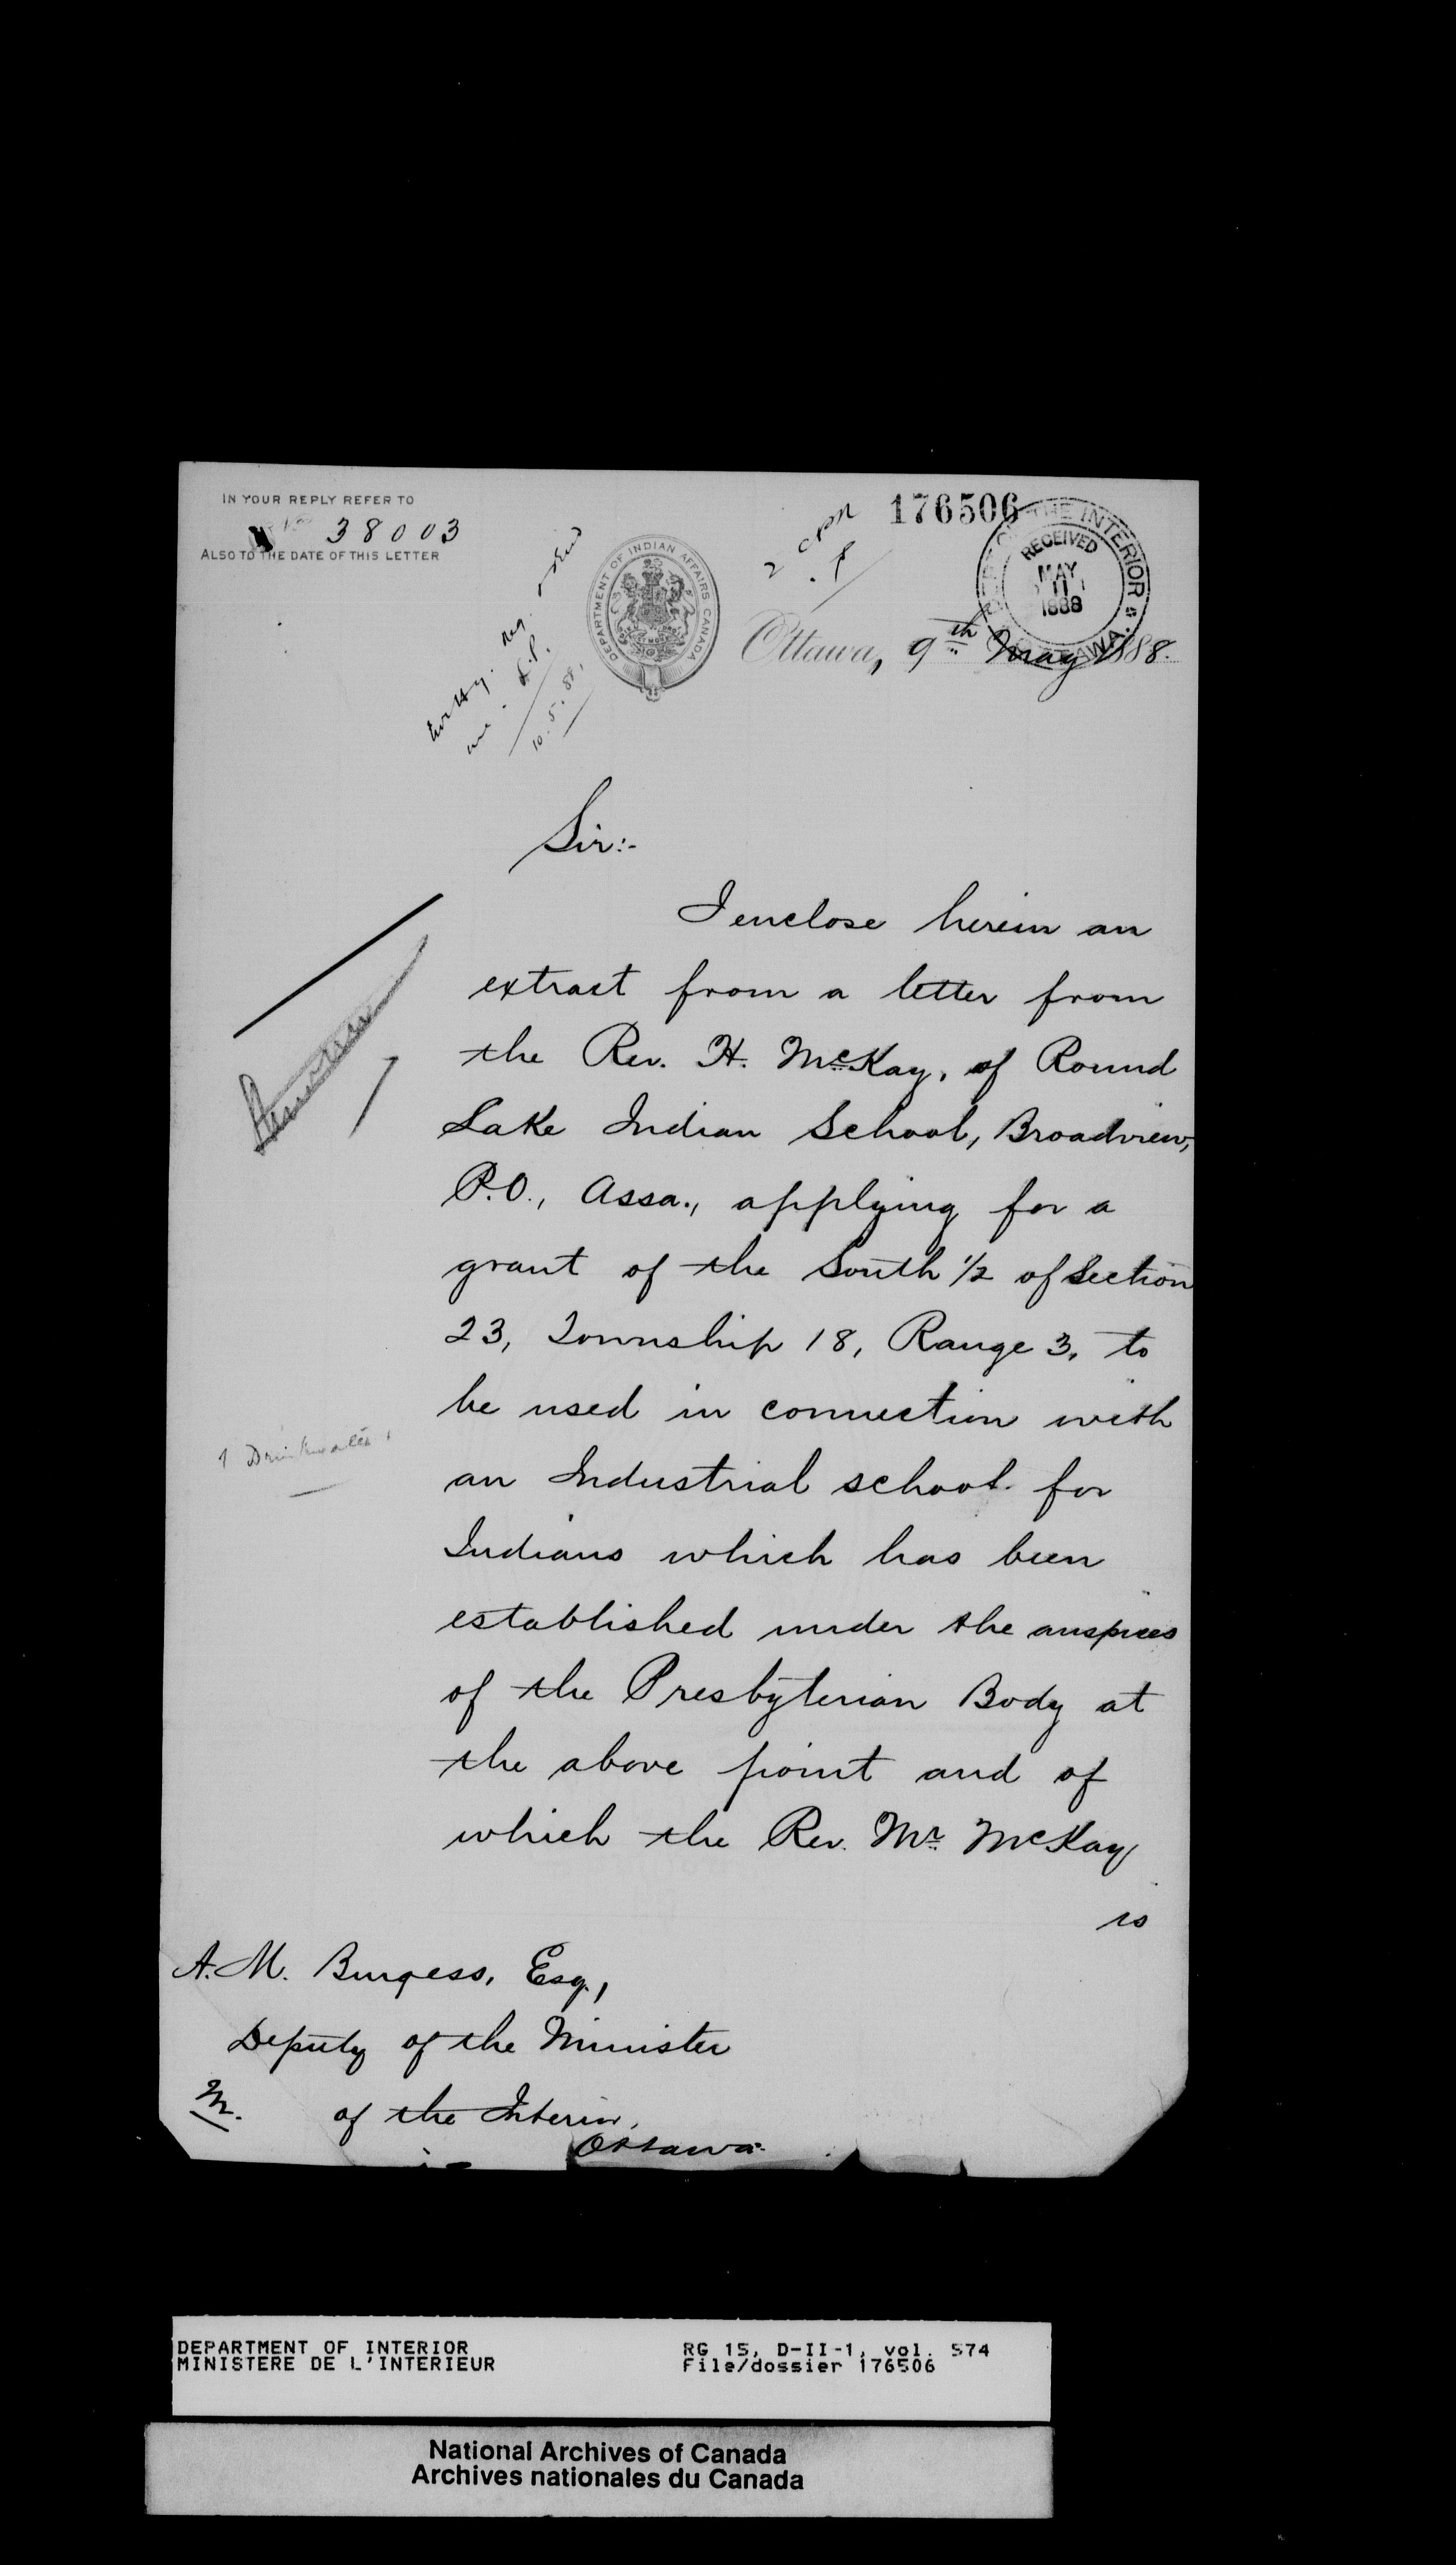 IN YOUR REPLY REFER TO
38003
ALSO TO THE DATE OF THIS LETTER
176506
DEPARTMENT OF INDIAN AFFAIRS CANADA
THE INTERIOR
RECEIVED
MAY
11
1888
OTTAWA
10.5.88.
Ottawa, 9th May 1888.
Sir:-
I enclose herein an
extract from a letter from
the Rev. H. McKay, of Round
Lake Indian School, Broadview,
P.O., Assa., applying for a
grant of the South 1/2 of Section
23, Township 18, Range 3, to
be used in connection with
an Industrial school for
Indians which has been
established under the auspices
of the Presbyterian Body at
the above point and of
which the Rev. Mr. McKay
is
Drinkwater
A. M. Burgess, Esq.,
Deputy of the Minister
of the Interior,
Ottawa.
DEPARTMENT OF INTERIOR
MINISTERE DE L'INTERIEUR
RG 15, D-II-1, vol. 574
File/dossier 176506
National Archives of Canada
Archives nationales du Canada